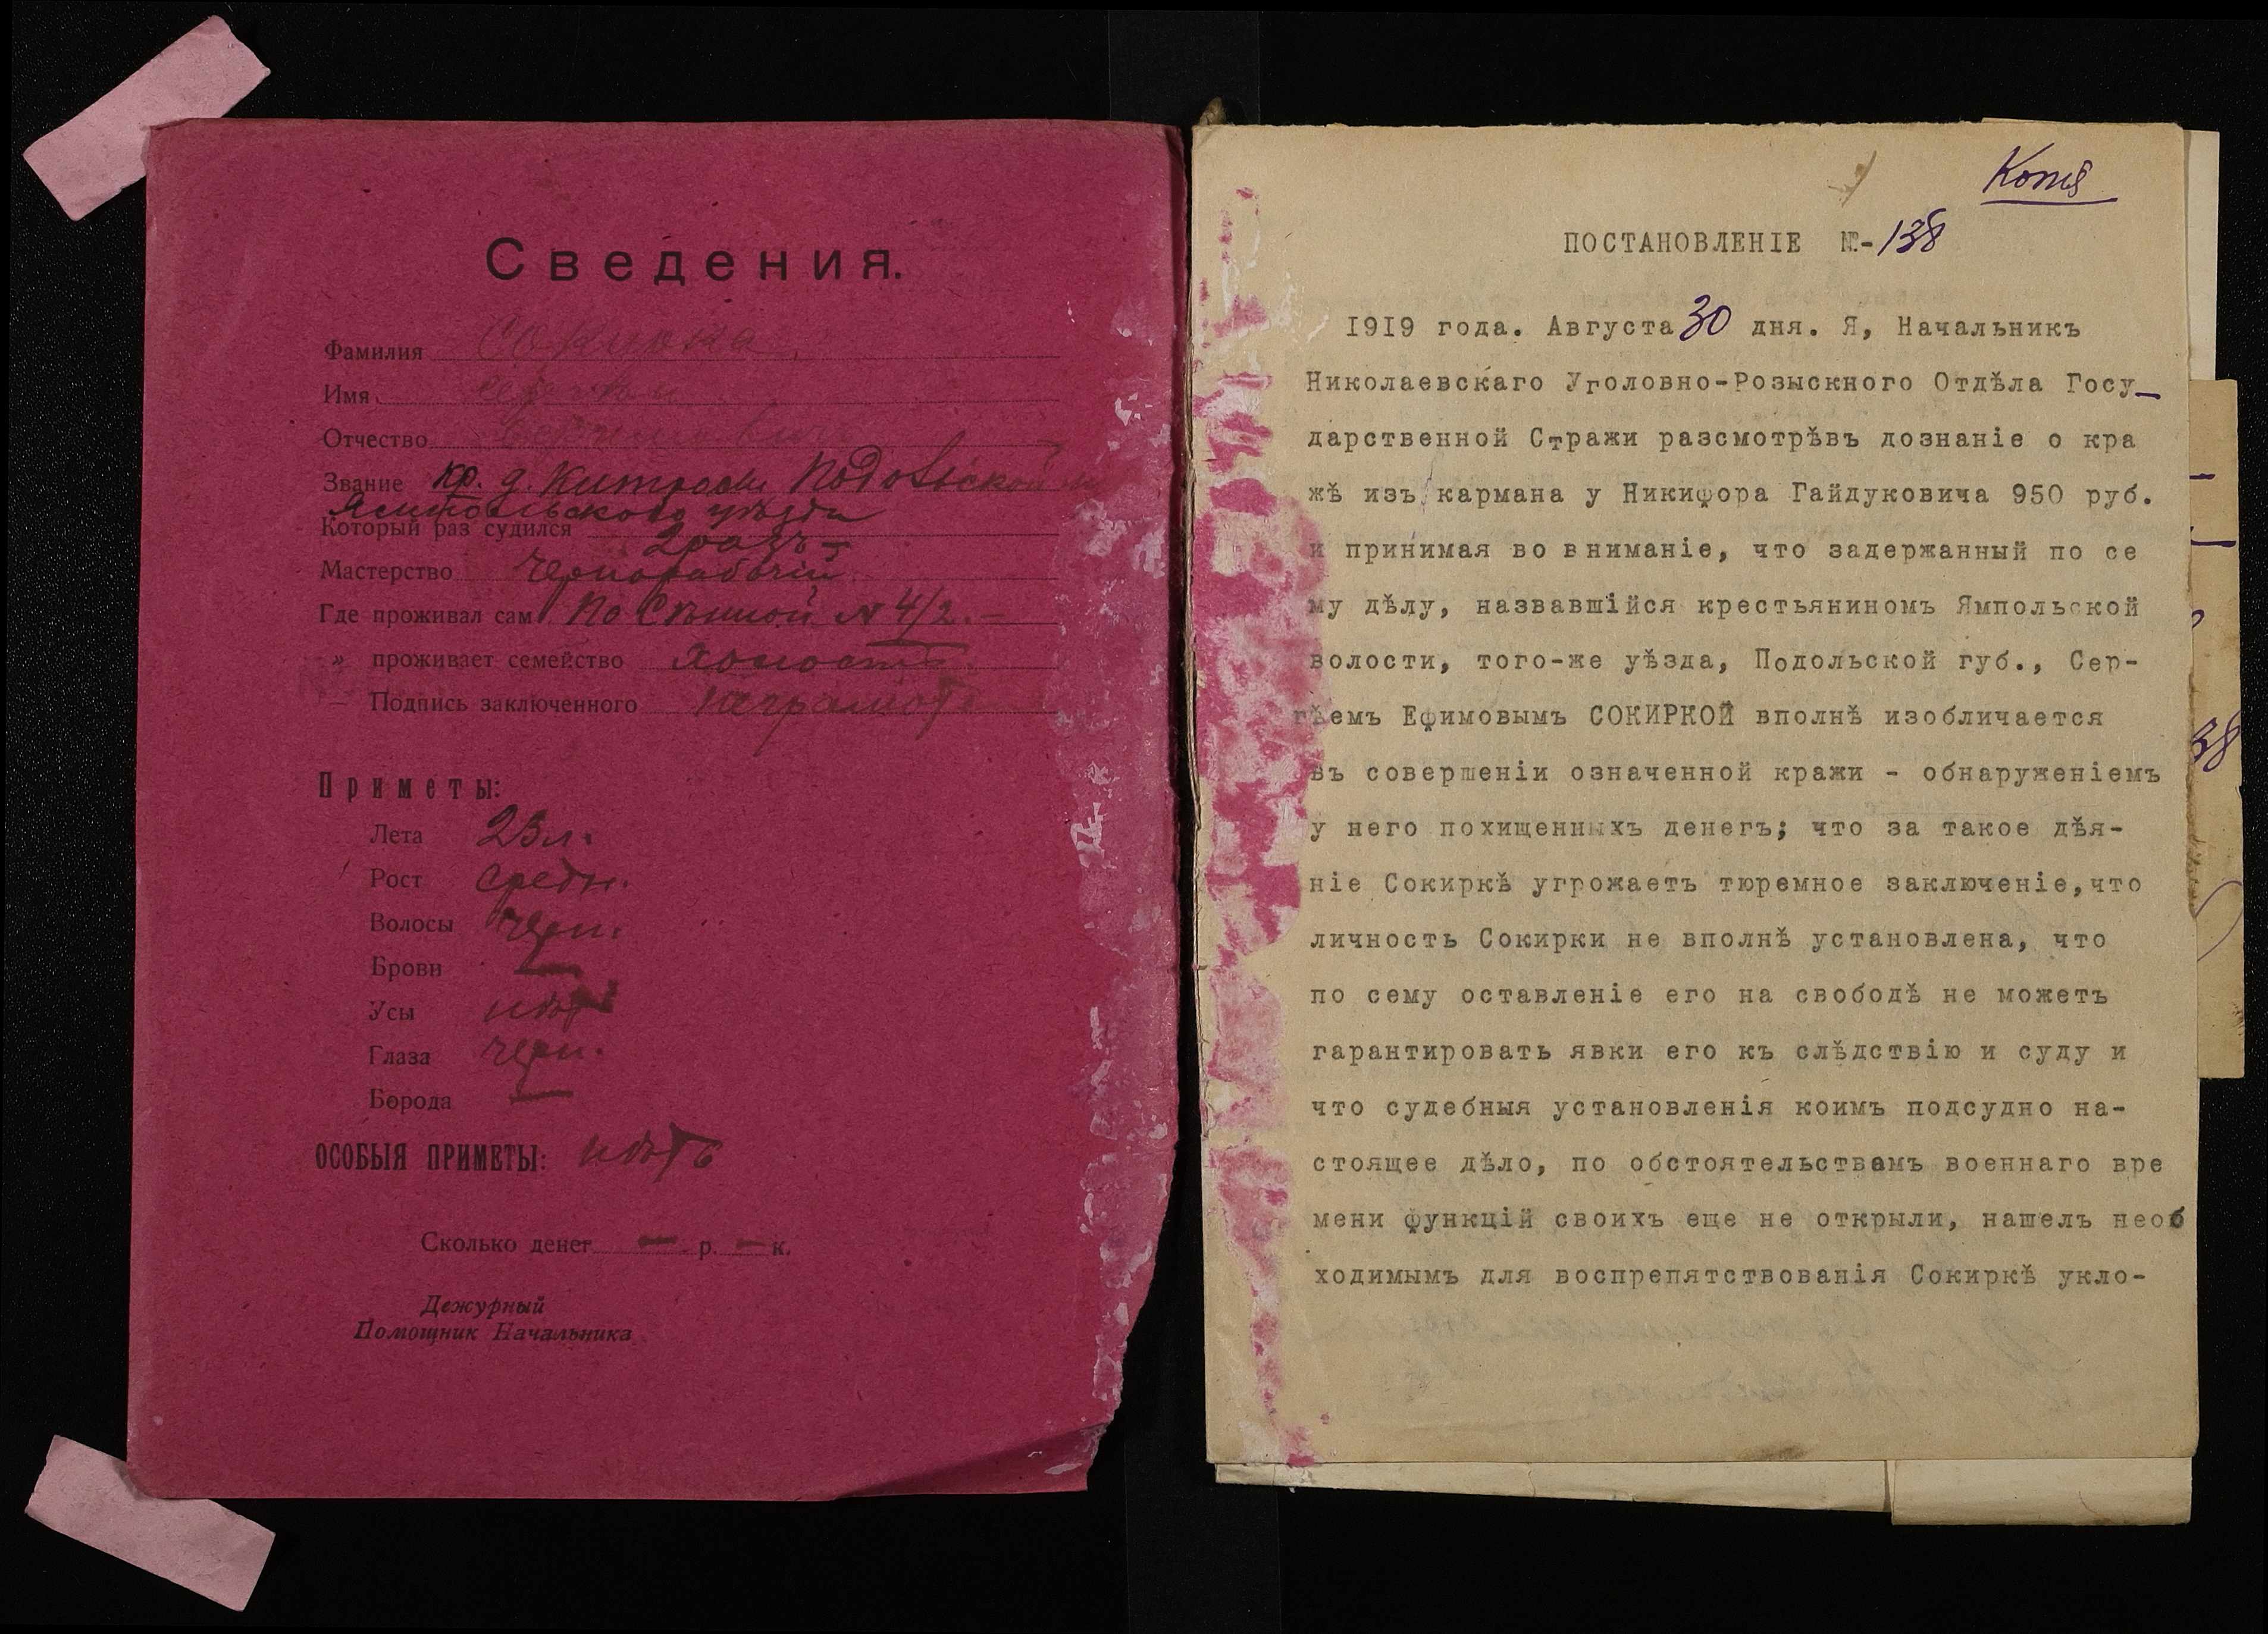 Сведения.
Фамилия Сокирка
Имя
Отчество
Звание кр. д. Подольской
Ямпольского уезда
Который раз судился 2 разъ
Мастерство Чернорабочій
Где проживал сам По Сѣнной № 4/2.
» проживает семейство холостъ
Подпись заключенного неграмотн
Приметы:
Лета 23 л.
Рост средн.
Волосы черн.
Брови —
Усы нѣтъ
Глаза черн.
Борода —
ОСОБЫЯ ПРИМЕТЫ: нѣтъ
Сколько денег — р. — к.
Дежурный
Помощник Начальника
Копія
ПОСТАНОВЛЕНІЕ №-138
1919 года. Августа 30 дня. Я, Начальникъ
Николаевскаго Уголовно-Розыскного Отдѣла Госу-
дарственной Стражи разсмотрѣвъ дознаніе о кра
жѣ изъ кармана у Никифора Гайдуковича 950 руб.
и принимая во вниманіе, что задержанный по се
му дѣлу, назвавшійся крестьяниномъ Ямпольской
волости, того-же уѣзда, Подольской губ., Сер-
гѣемъ Ефимовымъ СОКИРКОЙ вполнѣ изобличается
въ совершеніи означенной кражи - обнаруженіемъ
у него похищенныхъ денегъ; что за такое дѣя-
ніе Сокиркѣ угрожаетъ тюремное заключеніе,что
личность Сокирки не вполнѣ установлена, что
по сему оставленіе его на свободѣ не можетъ
гарантировать явки его къ слѣдствію и суду и
что судебныя установленія коимъ подсудно на-
стоящее дѣло, по обстоятельствамъ военнаго вре
мени функцій своихъ еще не открыли, нашелъ необ
ходимымъ для воспрепятствованія Сокиркѣ укло-
38